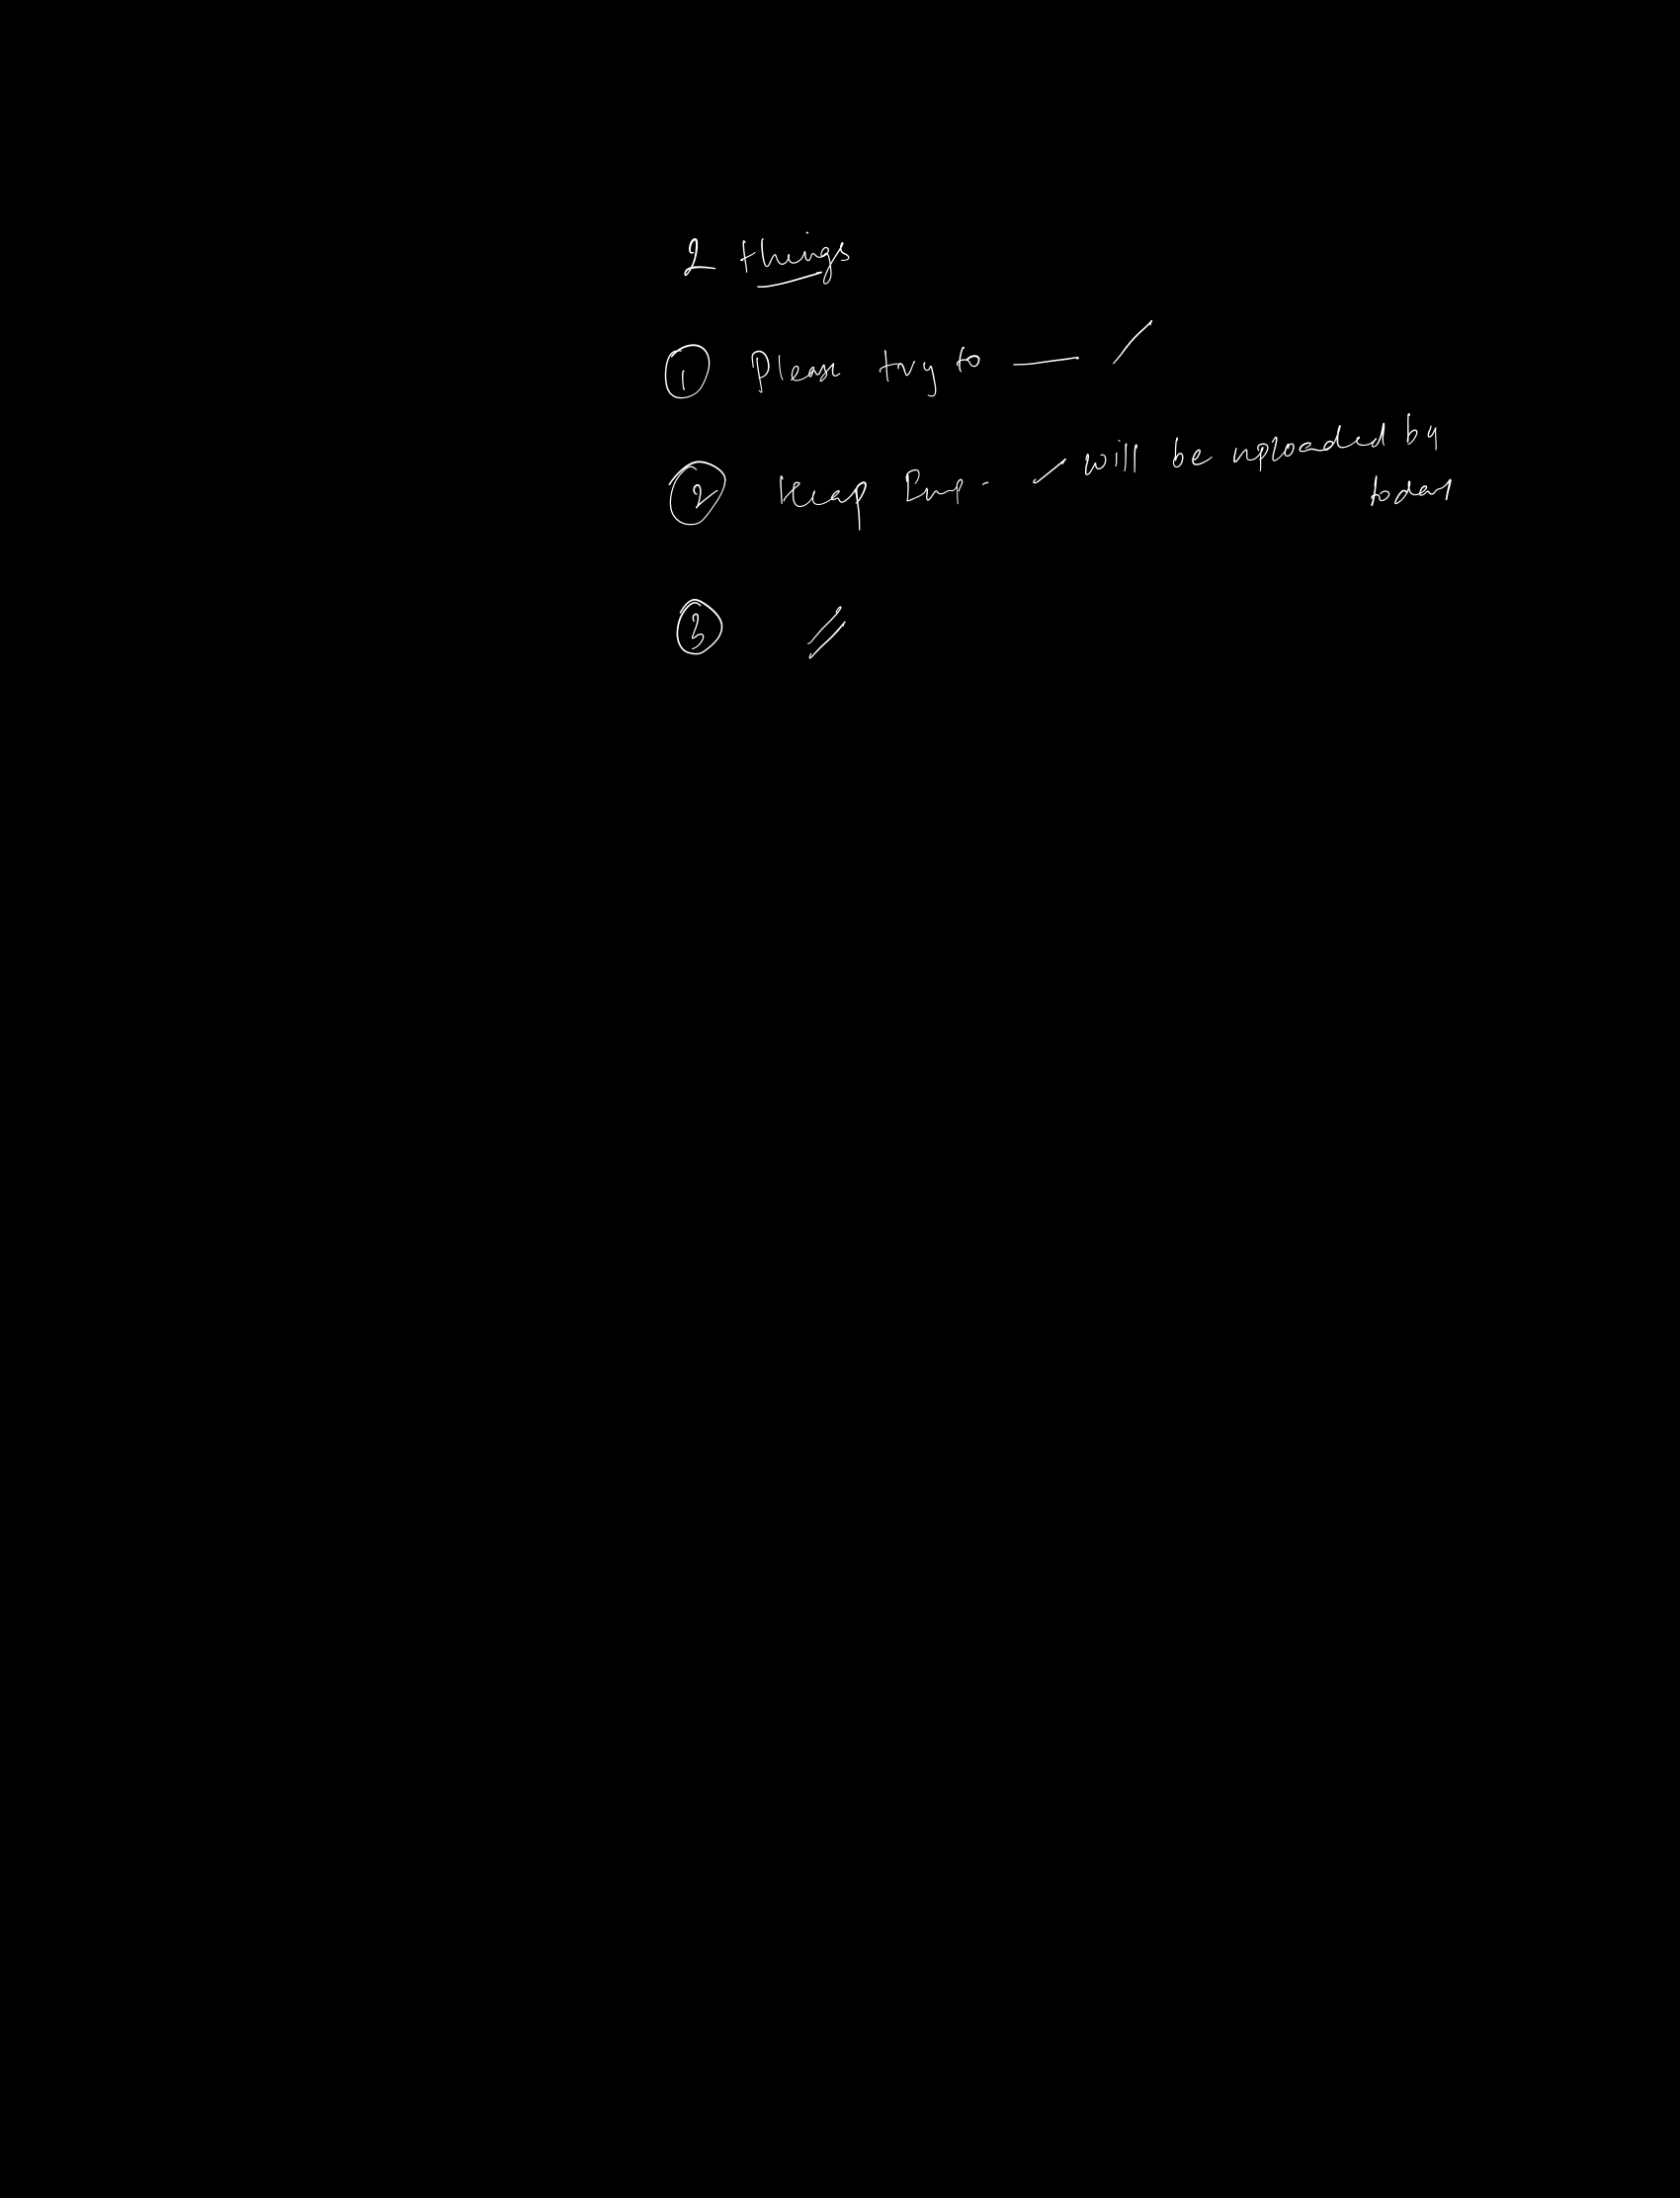 2 things
① Please try to —
② Heap Imp. will be uploaded by
today
③